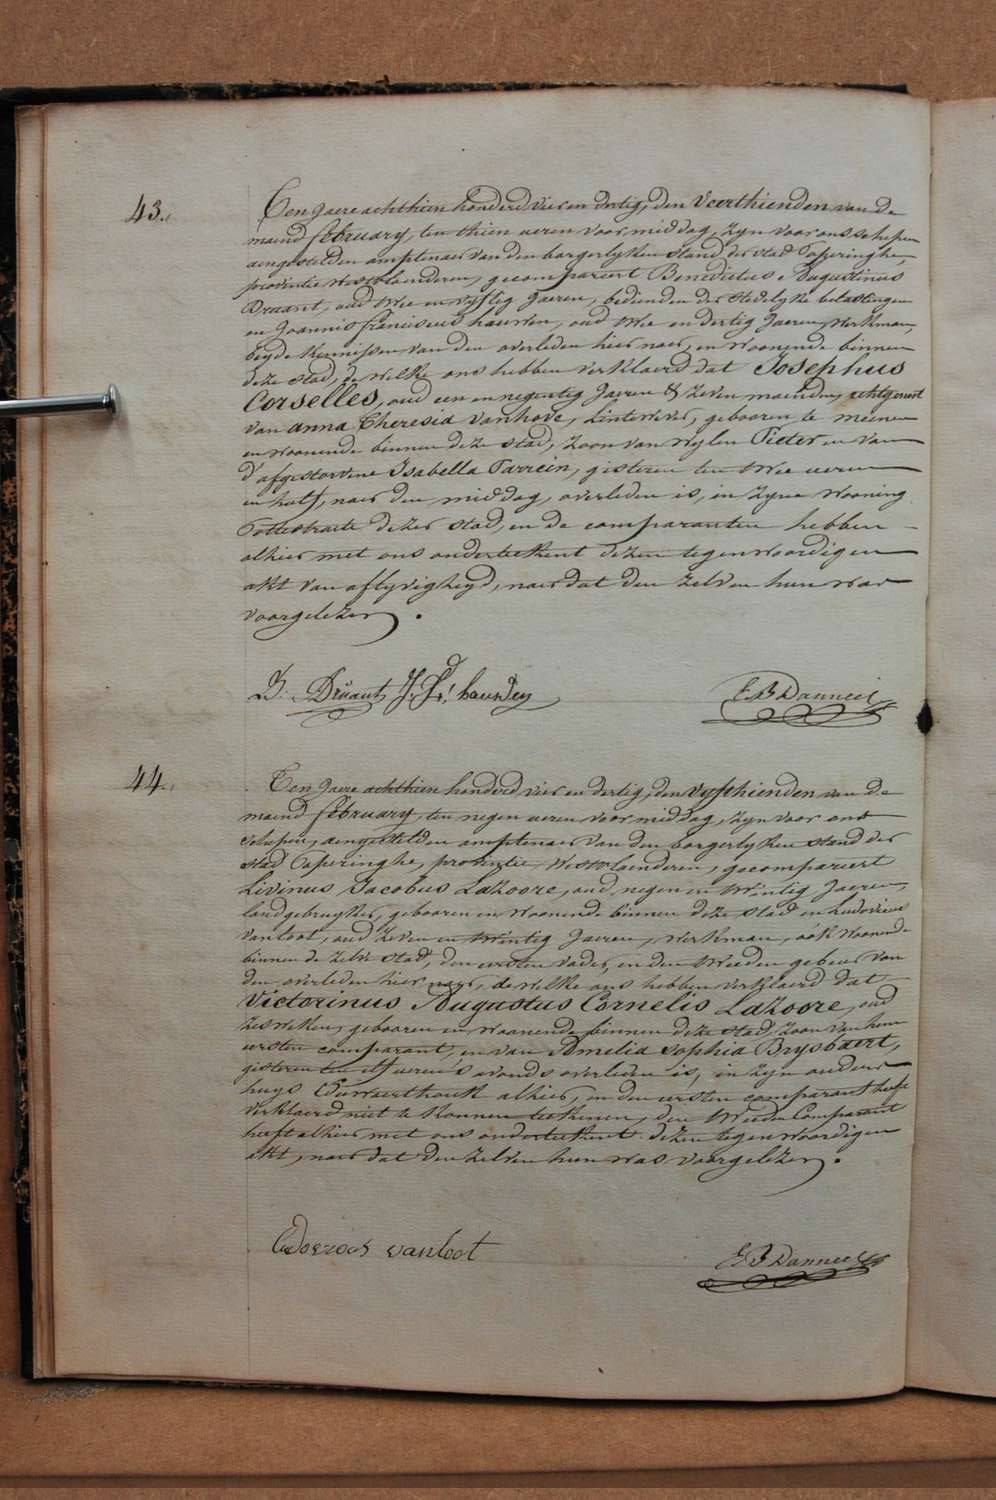 43.
Ten Jaere achthien honderd vier en dertig, den veerthienden van de
maend february, ten thien ueren voor middag, Zyn voor ons schepen
aengestelden amptenaer van den borgerlyken stand der stad Poperinghe,
provintie Westvlaenderen, gecompareert Benedictus Augustinus
Druant, oud twee en vyftig Jaeren, bedienden der stedelyke belastingen
en Joannis franciscus hauwen, oud twee en dertig Jaeren, Werkman,
beyde kennissen van den overleden hier naer, en Woonende binnen
deze stad, de welke ons hebben verklaerd dat Josephus
Corselles, oud een en negentig Jaeren & zeven maenden, echtgenoot
van anna Theresia vanhove, Lintwever, gebooren te meenen
en woonende binnen deze stad, zoon van wylen Pieter en van
d'afgestorvene Isabella Parrein, gisteren ten twee ueren
en half, naer den middag, overleden is, in zyne Wooning
Pottestraete dezer stad, en de comparanten hebben
alhier met ons onderteekent dezen tegenwoordigen
akt van aflyvigheyd, naer dat den zelven hun was
voorgelezen.
B. Druant J. Fr.
E B Danneel
44.
Ten Jaere achthien honderd vier en dertig, den vyfthienden van de
maend february, ten negen ueren voor middag, Zyn voor ons
schepen, aengestelden amptenaer van den borgerlyken stand der
stad Poperinghe, provintie Westvlaenderen, gecompareert
Livinus Jacobus LaZoore, oud negen en twintig Jaeren,
landgebruyker, gebooren en Woonende binnen deze stad en Ludovicus
vanloot, oud zeven en twintig Jaeren, Werkman, oók Woonende
binnen de zelve stad, den eersten vader, en den tweeden gebuer van
den overleden hier naer, de welke ons hebben verklaerd dat
Victorinus Augustus Cornelis LaZoore, oud
zes weken, gebooren en woonende binnen deze stad, zoon van hem
eersten comparant, en van Amelia Sophia Brysbaert,
gisteren ten elf ueren s'avonds overleden is, in zyn ouders
huys alhier, en den eersten comparant heeft
verklaerd niet te konnen teekenen, den tweeden Comparant
heeft alhier met ons onderteekent dezen tegenwoordigen
akt, naer dat den zelven hun was voorgelezen.
vanloot
E B Danneel